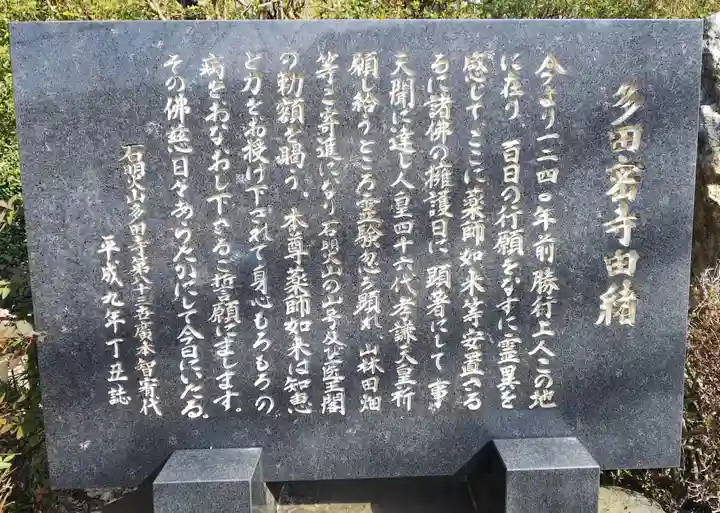 多田密寺由緒
今より一二四〇年前勝行上人この地
に在り、百日の行願をなすに霊異を
感じてここに薬師如来等安置さる
るに諸佛の擁護日に顕著にして事
天聞に達し人皇四十六代孝謙天皇祈
願し給うところ霊験忽ち顕れ、山林田畑
等ご寄進になり石明火山の山号及び醫王閣
の勅額を賜う。本尊薬師如来は知恵
と力をお授け下されて身心もろもろの
病をおなおし下さるご誓願にまします。
その佛慈日々あらたかにして今日にいたる。
石明火山多田寺第八十三世廣本智宥代
平成九年丁丑誌